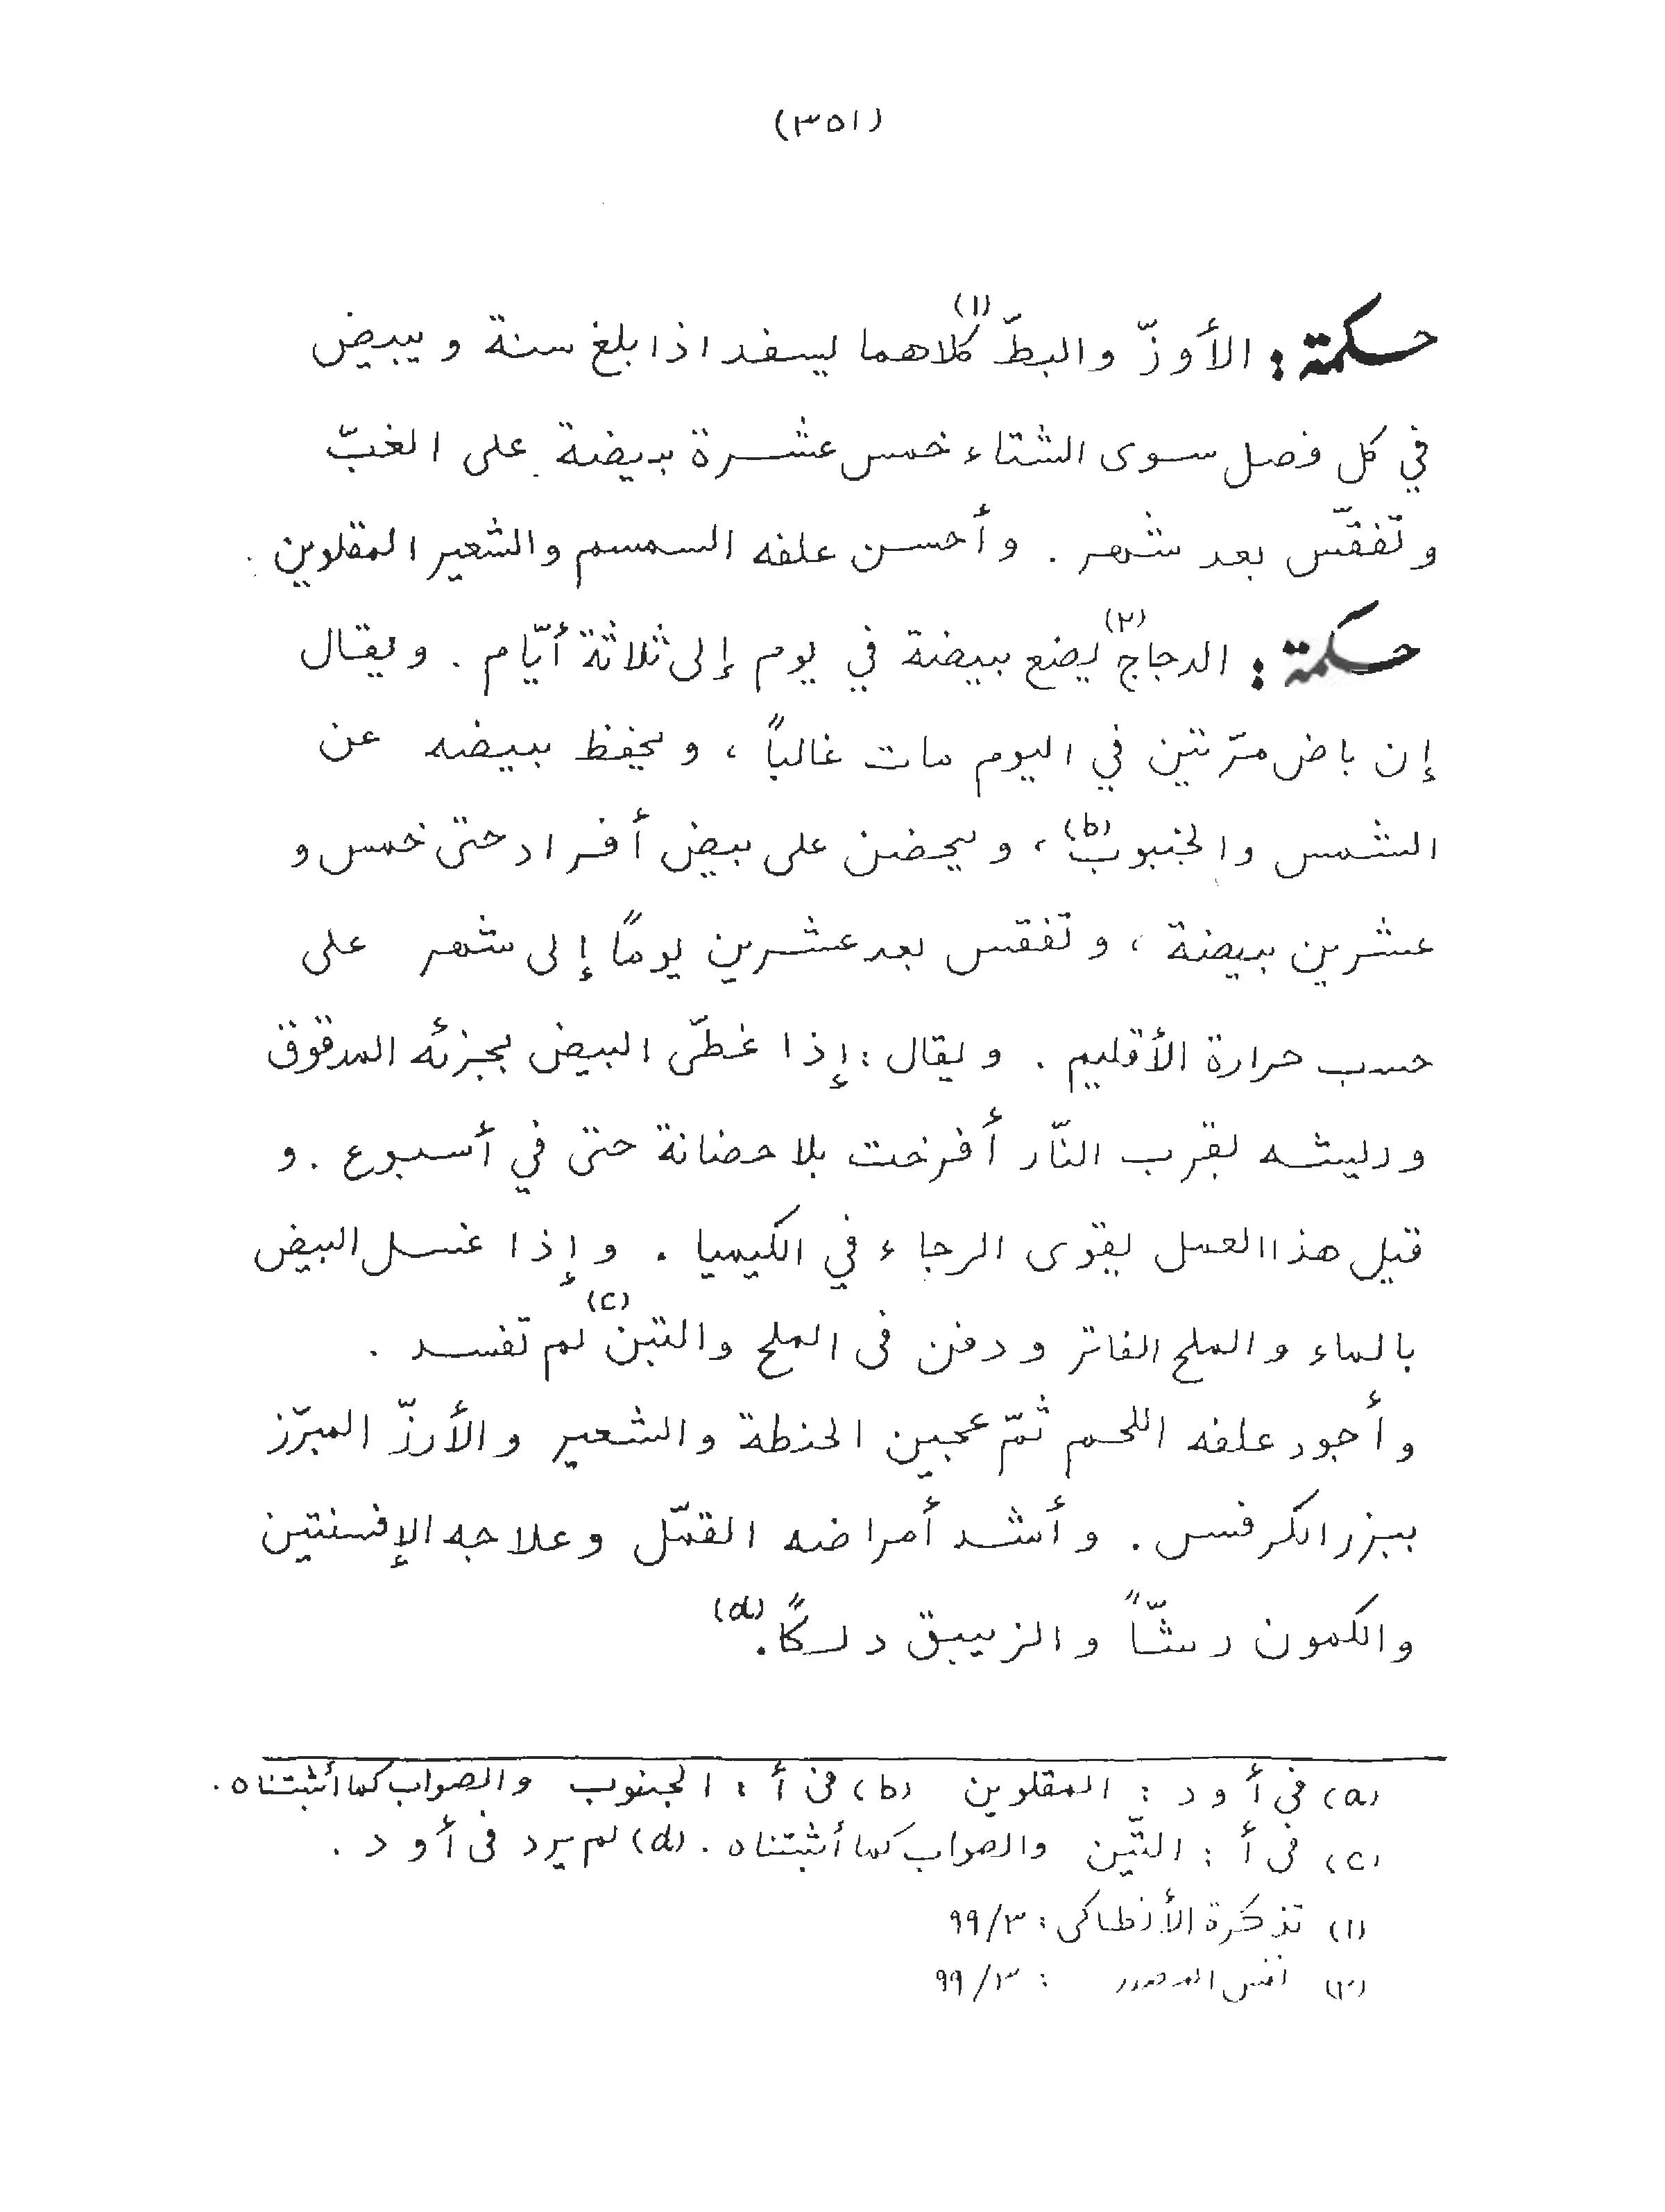 (٣٥١)
حكمة : الأوزّ والبطّ (١) كلاهما يسفد اذا بلغ سنة و يبيض
في كل فصل سوى الشتاء خمس عشرة بيضة على الغبّ
و تفقّس بعد شهر . و أحسن علفه السمسم والشعير المقلوين .
حكمة : الدجاج (٢) يضع بيضة في يوم إلى ثلاثة أيّام . و يقال
إن باض مرّتين في اليوم مات غالباً ، و يحفظ بيضه عن
الشمس والجنوب (b) ، و يحضن على بيض أفراد حتى خمس و
عشرين بيضة ، و تفقس بعد عشرين يوماً إلى شهر على
حسب حرارة الأقليم . و يقال : إذا غطّى البيض بجزئه المدقوق
و ريشه بقرب النّار أفرخت بلا حضانة حتى في أسبوع . و
قيل هذا العمل يقوى الرجاء في الكيميا . و إذا غسل البيض
بالماء و الملح الفاتر و دفن فى الملح والتبن (c) لم تفسد .
و أجود علفه اللحم ثمّ عجين الحنطة والشعير و الأرزّ المبرّز
ببزر الكرفس . و أشد أمراضه القمّل و علاجه الإفسنتين
والكمون رشّاً و الزيبق دلكاً . (d)
(a) فى أ و د : المقلوين (b) فى أ : الجنوب والصواب كما أثبتناه .
(c) فى أ : التّين والصواب كما أثبتناه . (d) لم يرد فى أ و د .
(١) تذكرة الأنطاكى : ٩٩/٣
(٢) نفس المصدر : ٩٩/٣